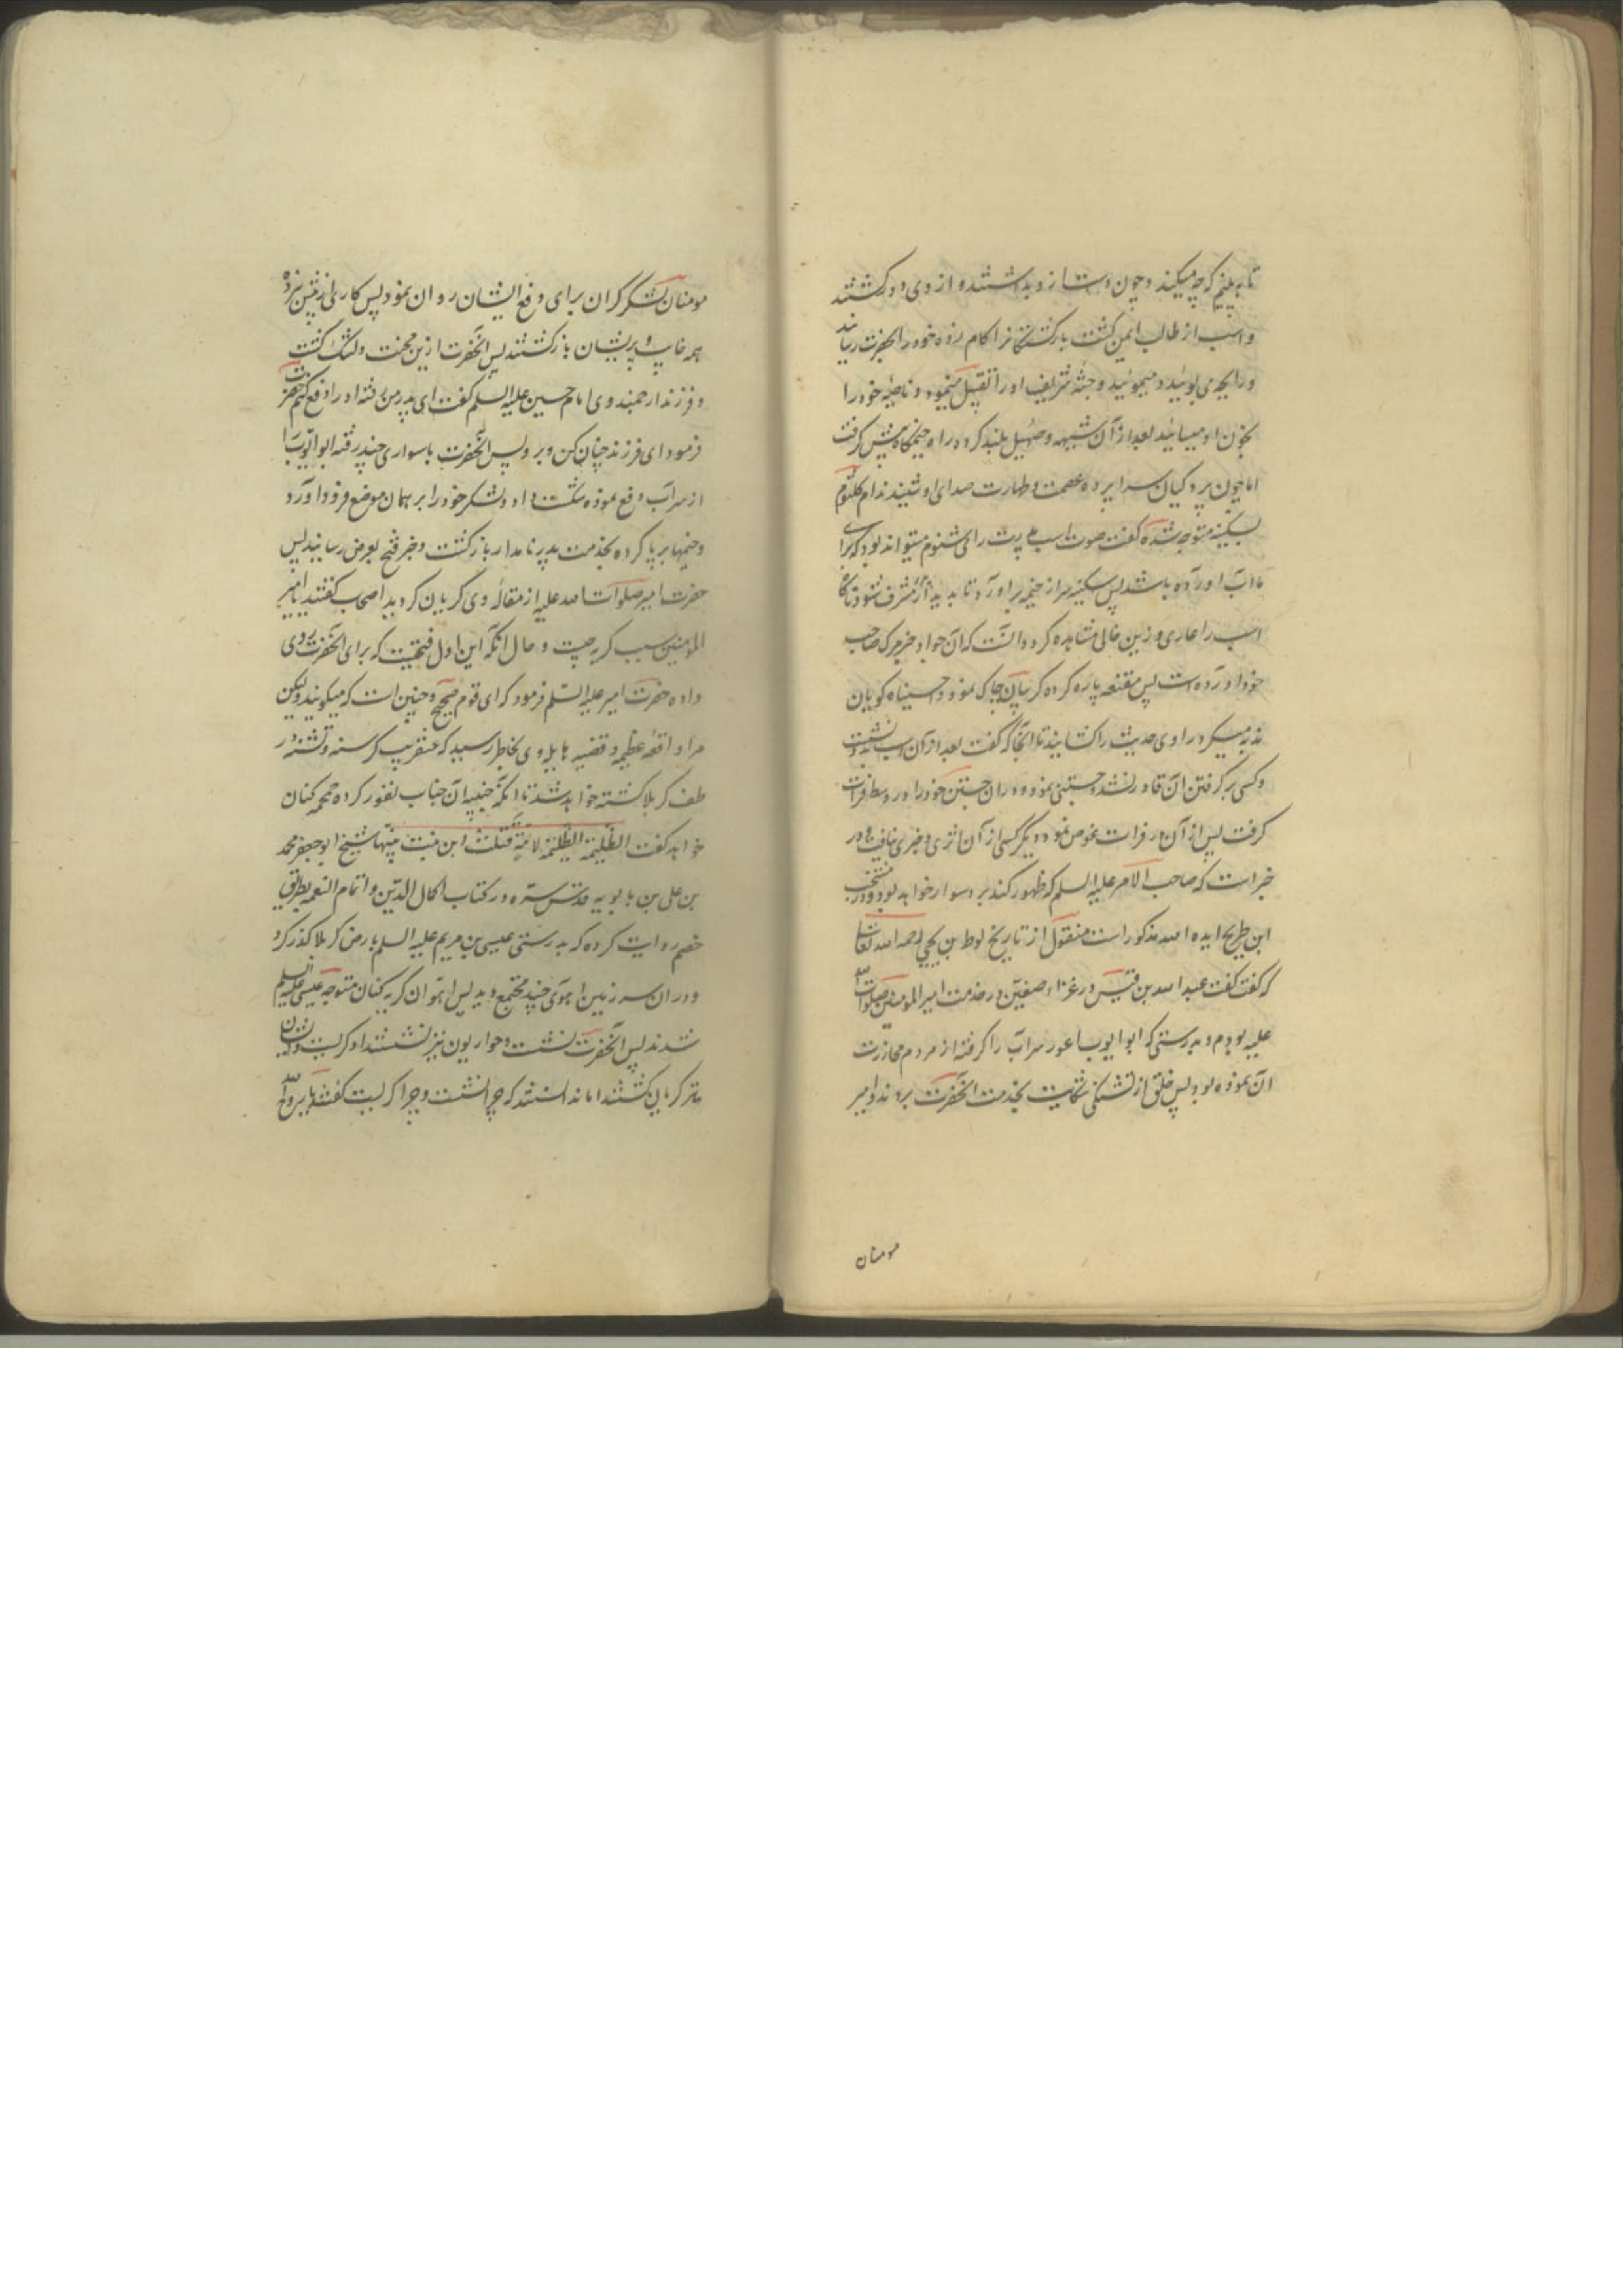 تا به بینیم که چه میکند و چون دست از و بداشتند و از وی دور کشتند
و اسب از طالب ایمن کشت بازکشت فراکام زده خود را بحضرت رساند
و رایحه می بوئید و میموئید و جثه شریف او را تقبیل مینمود و ناصیه خود را
بخون او میسائید بعد از آن شیهه و صهیل بلند کرد و راه خیمکاه پیش کرفت
اما چون پردکیان سراپرده عصمت و طهارت صدای او شنیدند ام کلثوم
بسکینه متوجه شده کفت صوت اسب پدرت را می شنوم میتواند بود که برای
ما آب آورده باشد پس سکینه سر از خیمه برآورد تا بدیدار مشرف شود ناکاه
اسب را عاری و زین خالی مشاهده کرد و دانست که آن جواد خبر مرک صاحب
خود آورده است پس مقنعه پاره کرده کریبان چاک نمود و احسیناه کویان
ندبه میکرد راوی حدیث را کشانید تا آنجا که کفت بعد از آن اسب
و کسی بر کرفتن آن قادر نشد و جستنی نمود و در آن جستن خود را در وسط فرات
کرفت پس از آن در فرات غوص نمود و دیکر کسی از آن اثری و خبری نیافت و در
خبر است که صاحب الامر علیه السلم که ظهور کند برو سوار خواهد بود و در منتخب
ابن طریح ایده الله مذکور است منقول از تاریخ لوط بن یحیی رحمه الله تعالی
که کفت کفت عبدالله بن قیس در غزاء صفین در خدمت امیر المومنین صلوات الله
علیه بودم و بدرستی که ابو ایوب اعور سر آب را کرفته از مردم محازرت
آن نموده بود پس خلق از تشنکی شکایت بخدمت آنحضرت بردند و امیر
مومنان
مومنان لشکر کران برای دفع ایشان روان نمود پس کاری از پیش نبرده
همه خایب و پریشان بازکشتند پس آنحضرت ازین محنت دلتنک کشت
و فرزند ارجمند وی امام حسین علیه السلم کفت ای پدر من رفته او را دفع کنم حضرت
فرمود ای فرزند چنان کن و برو پس آنحضرت با سواری چند رفته ابو ایوب را
از سر آب دفع نموده شکست داد و لشکر خود را بر همان موضع فرود آورد
و خیمها بر پا کرده بخدمت پدر نامدار بازکشت و خبر فتح بعرض رسانید پس
حضرت امیر صلوات الله علیه از مقاله وی کریان کردید اصحاب کفتند یا امیر
المومنین سبب کریه چیست و حال آنکه این اول فتحیست که برای آنحضرت روی
داده حضرت امیر علیه السلم فرمود که ای قوم صحیح و چنین است که میکویند ولیکن
مرا واقعه عظیمه و قضیه هایله وی بخاطر رسید که عنقریب کرسنه و تشنه در
طف کربلا کشته خواهد شد تا آنکه جنیبه آن جناب نفور کرده حمحمه کنان
خواهد کفت الظلیمه الظلیمه لامة قتلت ابن بنت نبیها شیخ ابو جعفر محمد
بن علی بن بابویه قدس سره در کتاب اکمال الدین و اتمام النعمه بطریق
خصم روایت کرده که بدرستی عیسی بن مریم علیه السلم بارض کربلا کذر کرد
و در آن سرزمین آهوی چند مجتمع دید پس آهوان کریه کنان متوجه عیسی علیه السلم
شدند پس آنحضرت نشست و حواریون نیز نشستند او کریست و ایشان
نیز کریان کشتند اما ندانستند که چرا نشست و چرا کریست کفتند یا روح الله